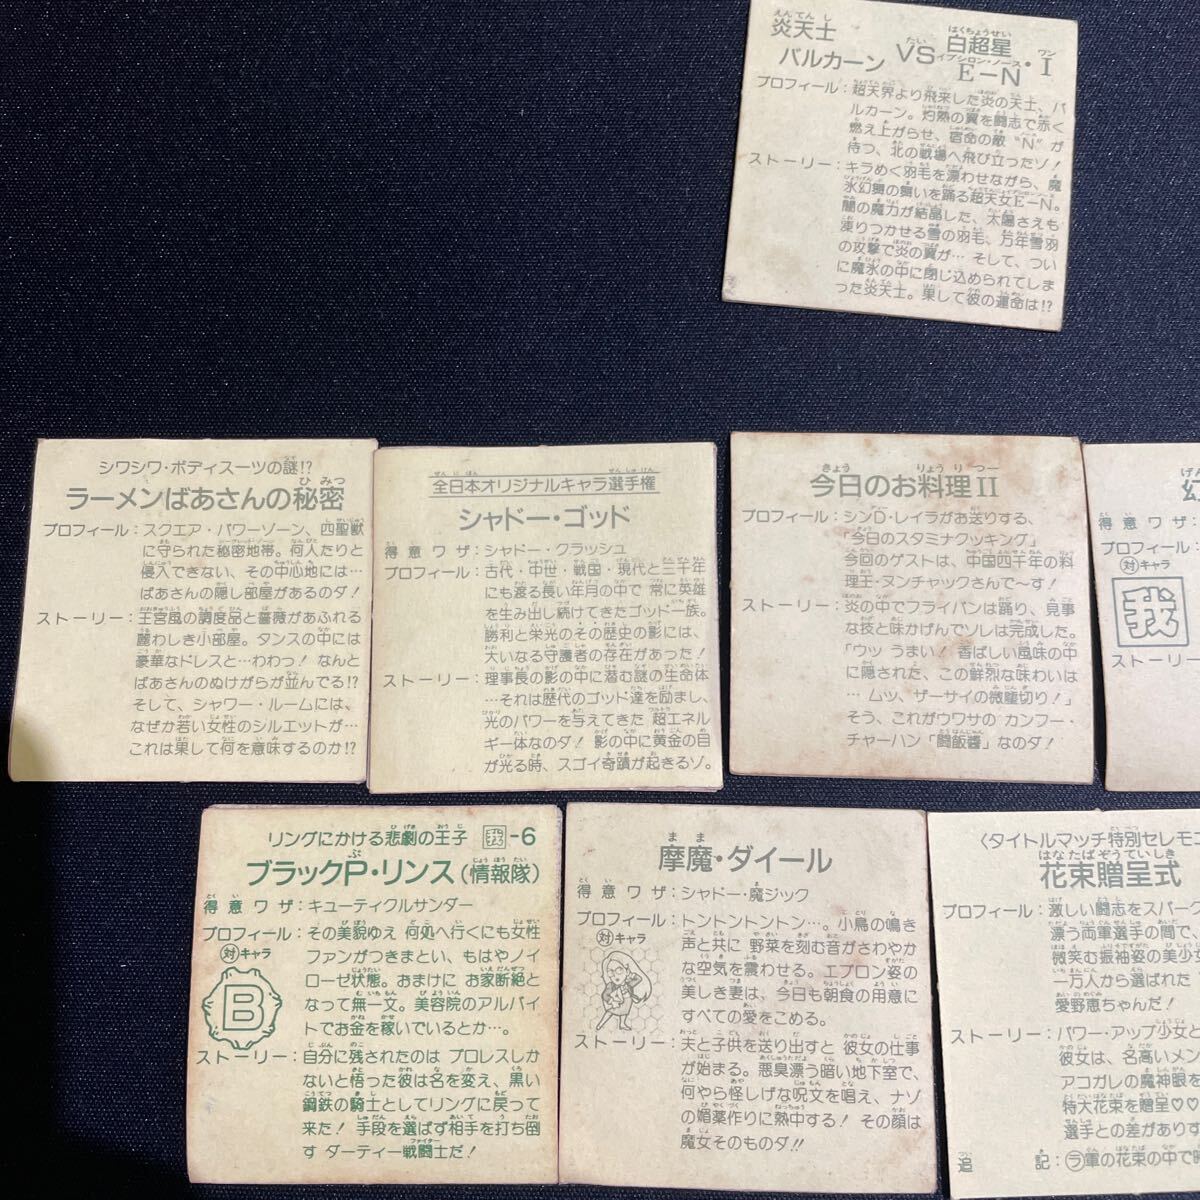 炎天士
バルカーン VS 白超星 E－N・I
プロフィール：超天界より飛来した炎の天士、バ
ルカーン。灼熱の翼を闘志で赤く
燃え上がらせ、宿命の敵“N”が
待つ、北の戦場へ飛び立ったゾ！
ストーリー：キラめく羽毛を漂わせながら、魔
氷幻舞の舞いを踊る超天女E－N。
闇の魔力が結晶した、太陽さえも
凍りつかせる雪の羽毛、万年雪羽
の攻撃で炎の翼が… そして、つい
に魔氷の中に閉じ込められてしま
った炎天士。果して彼の運命は!?
シワシワ・ボディスーツの謎!?
ラーメンばあさんの秘密
プロフィール：スクエア・パワーゾーン、四聖獣
に守られた秘密地帯。何人たりと
侵入できない、その中心地には…
ばあさんの隠し部屋があるのダ！
ストーリー：王宮風の調度品と薔薇があふれる
麗わしき小部屋。タンスの中には
豪華なドレスと…わわっ！ なんと
ばあさんのぬけがらが並んでる!?
そして、シャワー・ルームには、
なぜか若い女性のシルエットが…
これは果して何を意味するのか!?
全日本オリジナルキャラ選手権
シャドー・ゴッド
得意ワザ：シャドー・クラッシュ
プロフィール：古代・中世・戦国・現代と三千年
にも渡る長い年月の中で 常に英雄
を生み出し続けてきたゴッド一族。
勝利と栄光のその歴史の影には、
大いなる守護者の存在があった！
ストーリー：理事長の影の中に潜む謎の生命体
…それは歴代のゴッド達を励まし、
光のパワーを与えてきた 超エネル
ギー体なのダ！ 影の中に黄金の目
が光る時、スゴイ奇蹟が起きるゾ。
今日のお料理II
プロフィール：シンD・レイラがお送りする、
「今日のスタミナクッキング」
今回のゲストは、中国四千年の料
理王・ヌンチャックさんで～す！
ストーリー：炎の中でフライパンは踊り、見事
な技と味かげんでソレは完成した。
「ウッ うまい！ 香ばしい風味の中
に隠された、この鮮烈な味わいは
… ムッ、ザーサイの微塵切り！」
そう、これがウワサの カンフー・
チャーハン「闘飯醬」なのダ！
幻
得意ワザ：
プロフィール：
対キャラ
我
ストーリー
リングにかける悲劇の王子 我-6
ブラックP・リンス(情報隊)
得意ワザ：キューティクルサンダー
プロフィール：その美貌ゆえ 何処へ行くにも女性
対キャラ
B
ファンがつきまとい、もはやノイ
ローゼ状態。おまけに お家断絶と
なって無一文。美容院のアルバイ
トでお金を稼いでいるとか…。
ストーリー：自分に残されたのは プロレスしか
ないと悟った彼は名を変え、黒い
鋼鉄の騎士としてリングに戻って
来た！ 手段を選ばず相手を打ち倒
す ダーティー戦闘士だ！
摩魔・ダイール
得意ワザ：シャドー・魔ジック
プロフィール：トントントントン…。小鳥の鳴き
対キャラ
声と共に 野菜を刻む音がさわやか
な空気を震わせる。エプロン姿の
美しき妻は、今日も朝食の用意に
すべての愛をこめる。
ストーリー：夫と子供を送り出すと 彼女の仕事
が始まる。悪臭漂う暗い地下室で、
何やら怪しげな呪文を唱え、ナゾ
の媚薬作りに熱中する！ その顔は
魔女そのものダ!!
〈タイトルマッチ特別セレモニ
花束贈呈式
プロフィール：激しい闘志をスパーク
漂う両軍選手の間で、
微笑む振袖姿の美少女
一万人から選ばれた
愛野恵ちゃんだ！
ストーリー：パワー・アップ少女と
彼女は、名高いメン
アコガレの魔神眼を
特大花束を贈呈♡♡
選手との差がありす
追記：ラ軍の花束の中で時